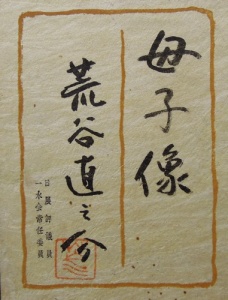 母子像
荒谷直之介
日展評議員
一水会常任委員